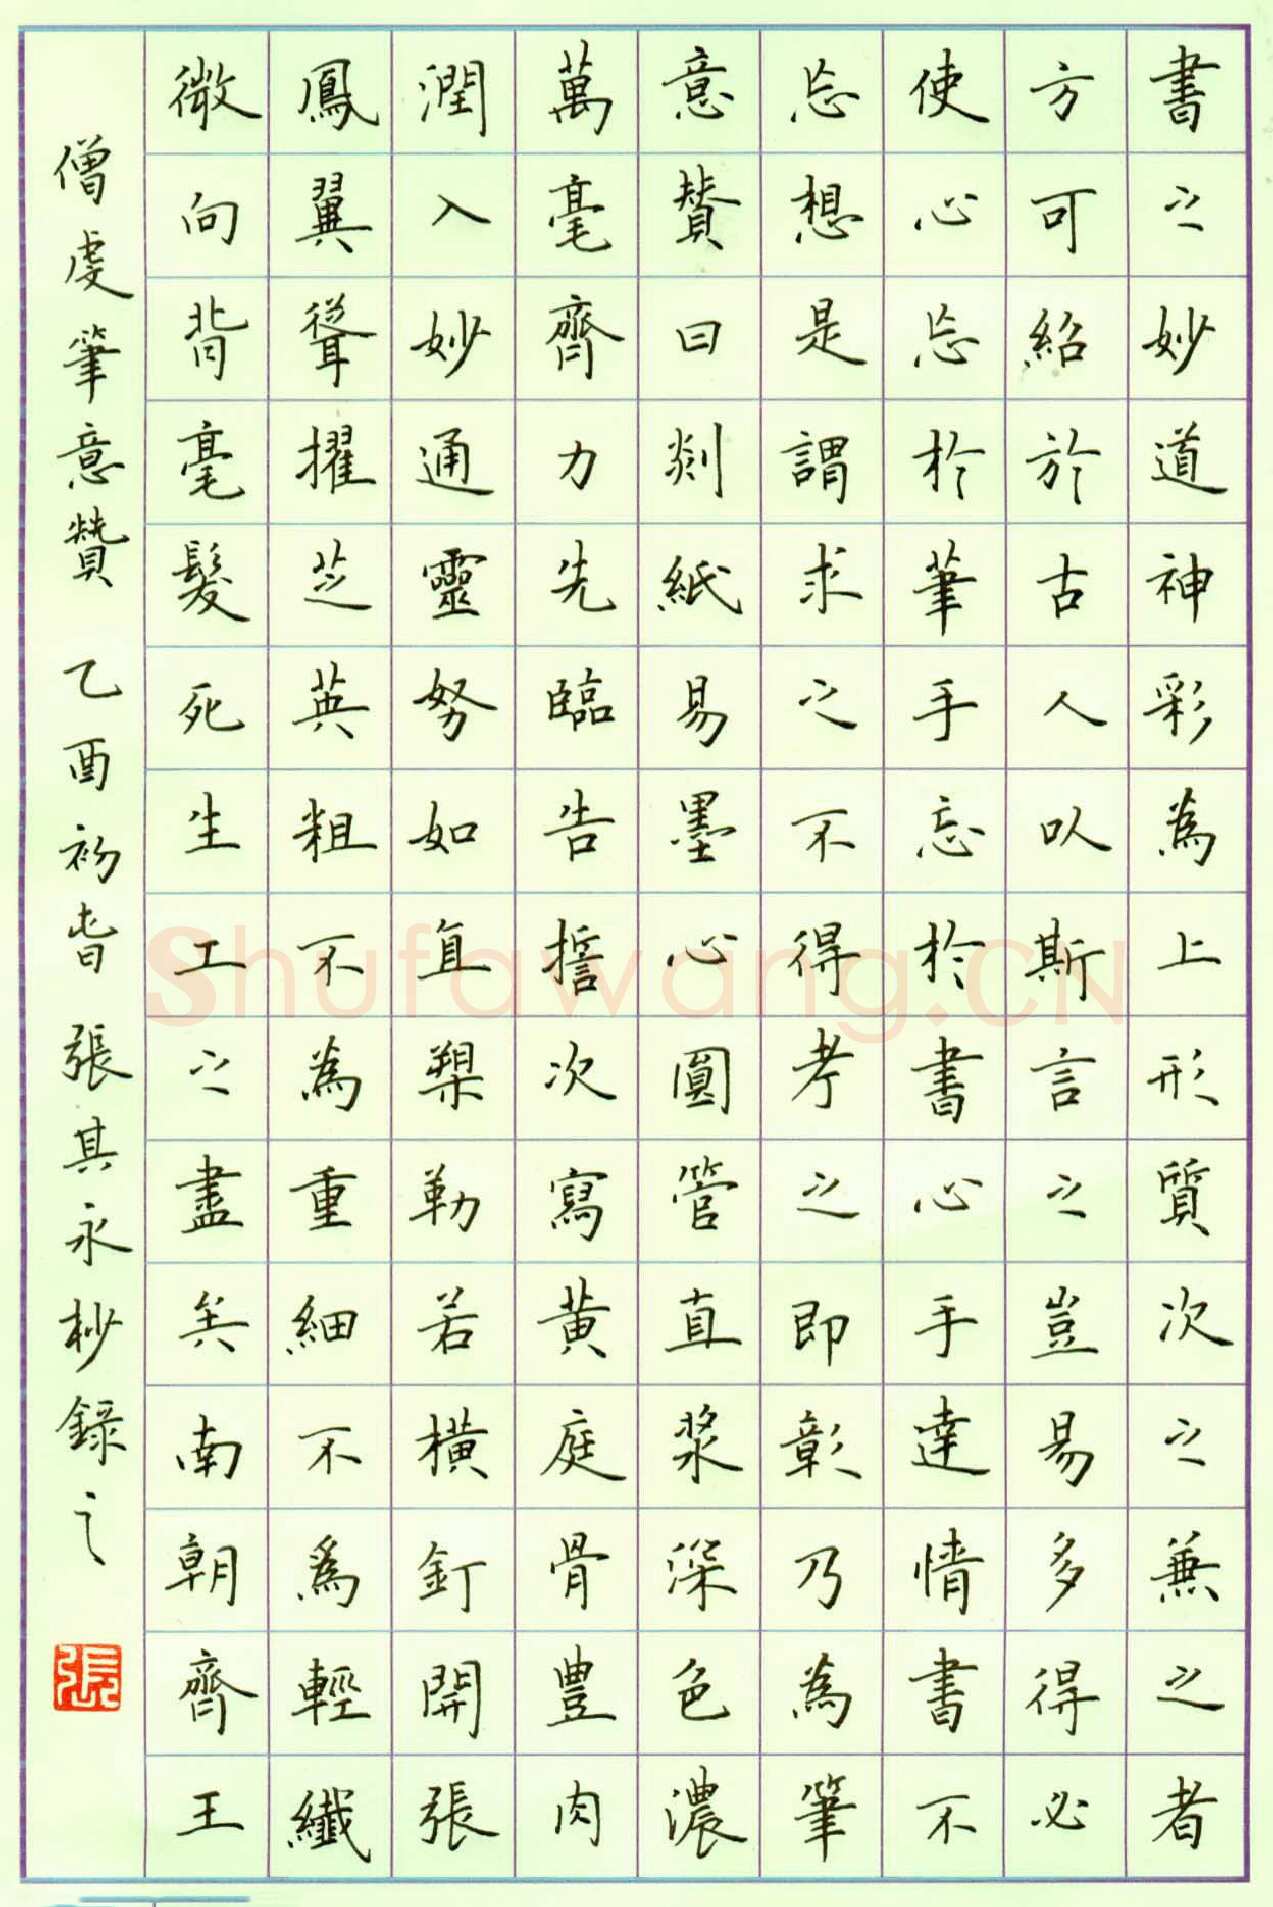 書之妙道神彩為上形質次之兼之者
方可紹於古人以斯言之豈易多得必
使心忘於筆手忘於書心手達情書不
忘想是謂求之不得考之即彰乃為筆
意贊曰剡紙易墨心圓管直漿深色濃
萬毫齊力先臨告誓次寫黃庭骨豊肉
潤入妙通靈努如直槊勒若橫釘開張
鳳翼聳擢芝英粗不為重細不為輕纖
微向背毫髮死生工之盡矣南朝齊王
僧虔筆意贊 乙酉初春 張其永抄錄之
張
Shufawang.CN